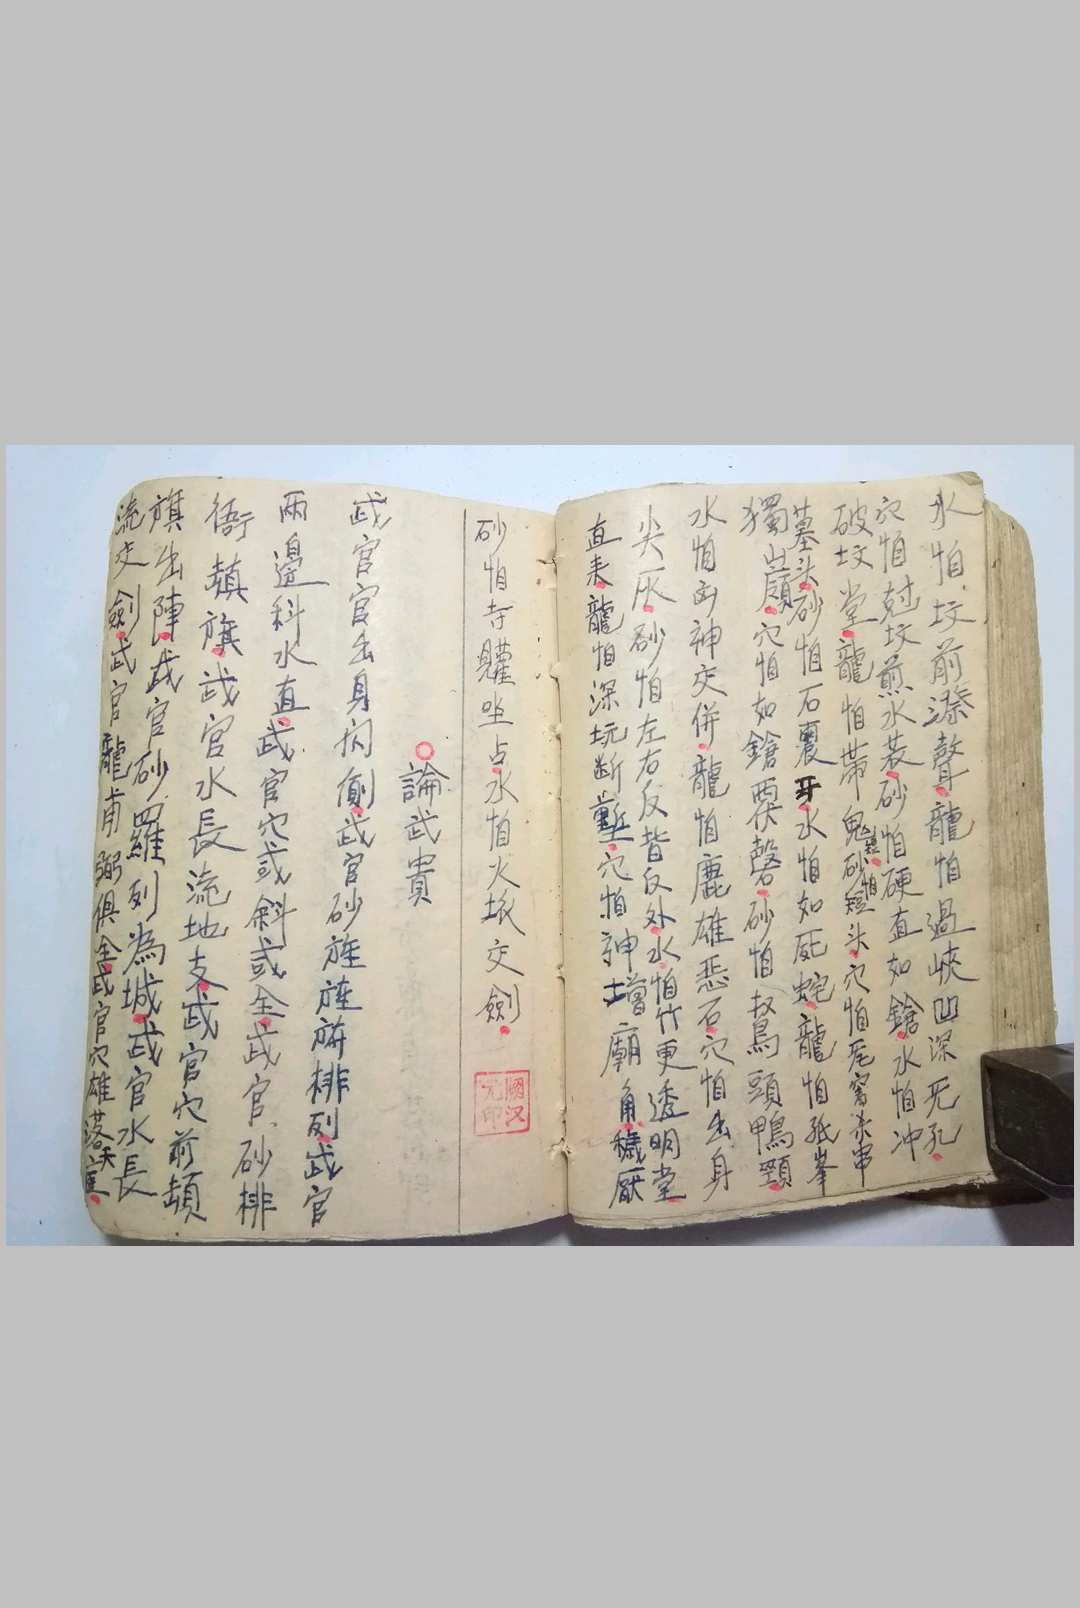 水怕坟前潦聲龍怕過峽凹深死孔
穴怕尅坟煎水裝砂怕硬直如鎗水怕冲
破坟堂龍怕帶鬼砂短頭穴怕串
墓头砂怕石裏牙水怕如死蛇龍怕孤峯
獨山嶺穴怕如鎗栗磬砂怕鵞頭鴨頸
水怕凶神交併龍怕鹿雄恶石穴怕出身
尖灰砂怕左右反背反外水怕竹更透明堂
直来龍怕深坑断塹穴怕神增廟角穢厭
砂怕寺坐占水怕火城交劍
國汉元印
論武貴
武官官出身闪側武官砂旌旌旆排列武官
兩邊科水直武官穴或斜或全武官砂排
衙頓旗武官水長流地支武官穴前頓
旗出陣武官砂羅列為城武官水長
流交劍武官龍甫弼俱全武官穴雄落